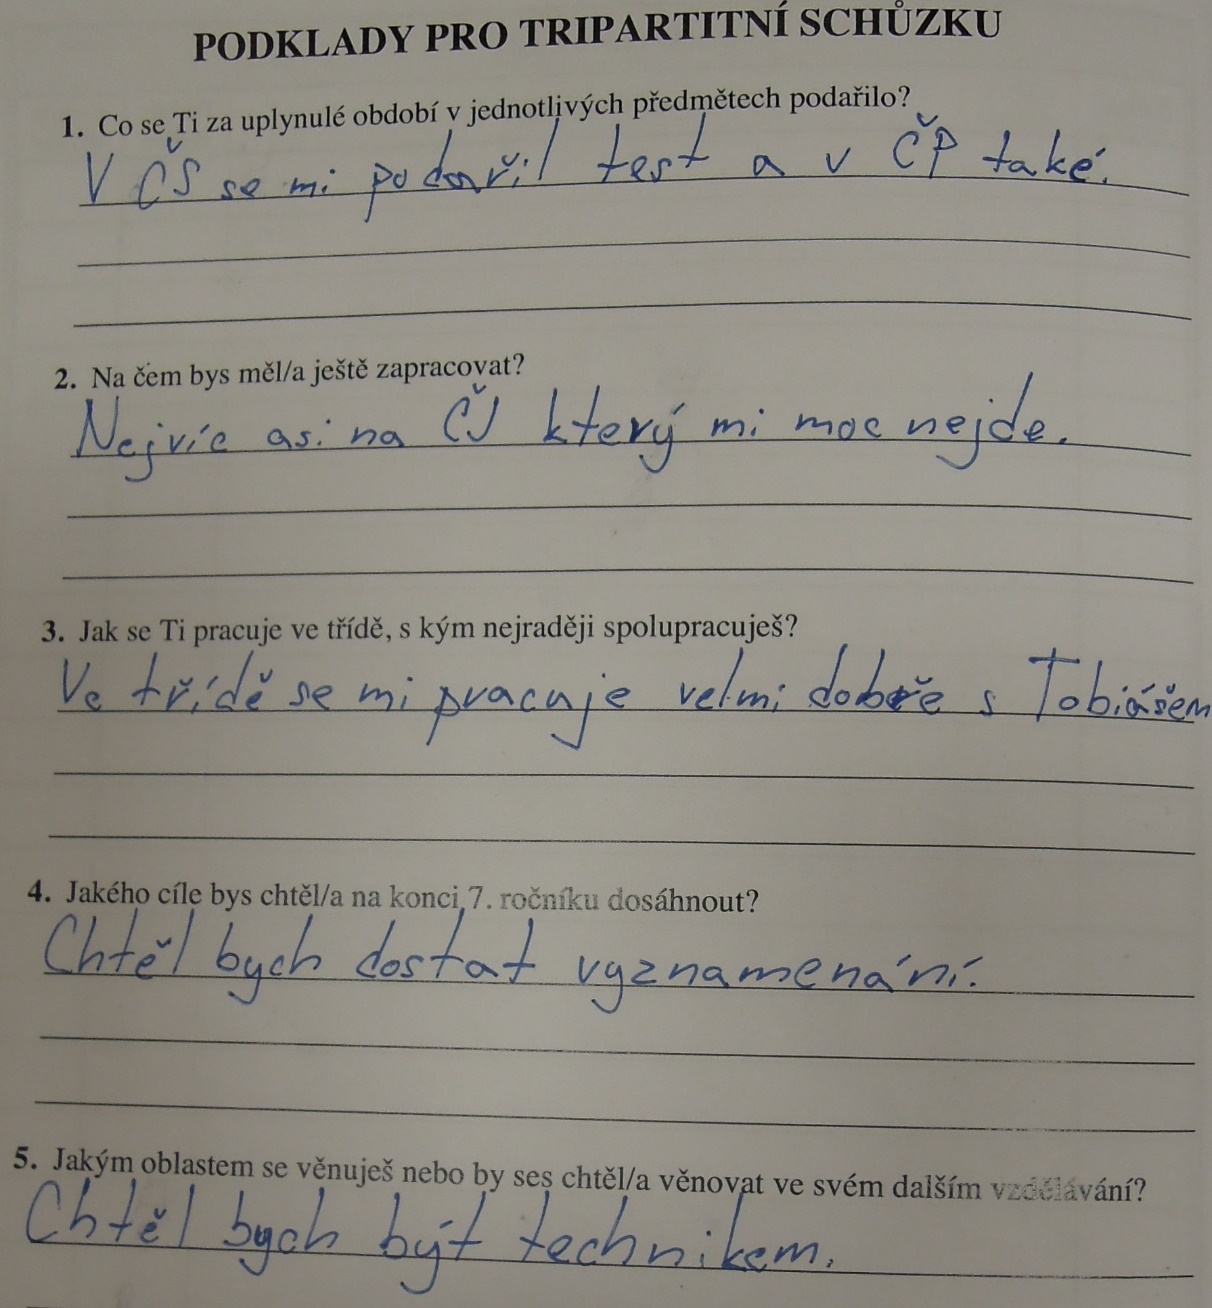 PODKLADY PRO TRIPARTITNÍ SCHŮZKU
1. Co se Ti za uplynulé období v jednotlivých předmětech podařilo?
V ČŠ se mi podařil test a v ČP také.
2. Na čem bys měl/a ještě zapracovat?
Nejvíc asi na ČJ který mi moc nejde.
3. Jak se Ti pracuje ve třídě, s kým nejraději spolupracuješ?
Ve třídě se mi pracuje velmi dobře s Tobiášem
4. Jakého cíle bys chtěl/a na konci 7. ročníku dosáhnout?
Chtěl bych dostat vyznamenání.
5. Jakým oblastem se věnuješ nebo by ses chtěl/a věnovat ve svém dalším vzdělávání?
Chtěl bych být technikem.